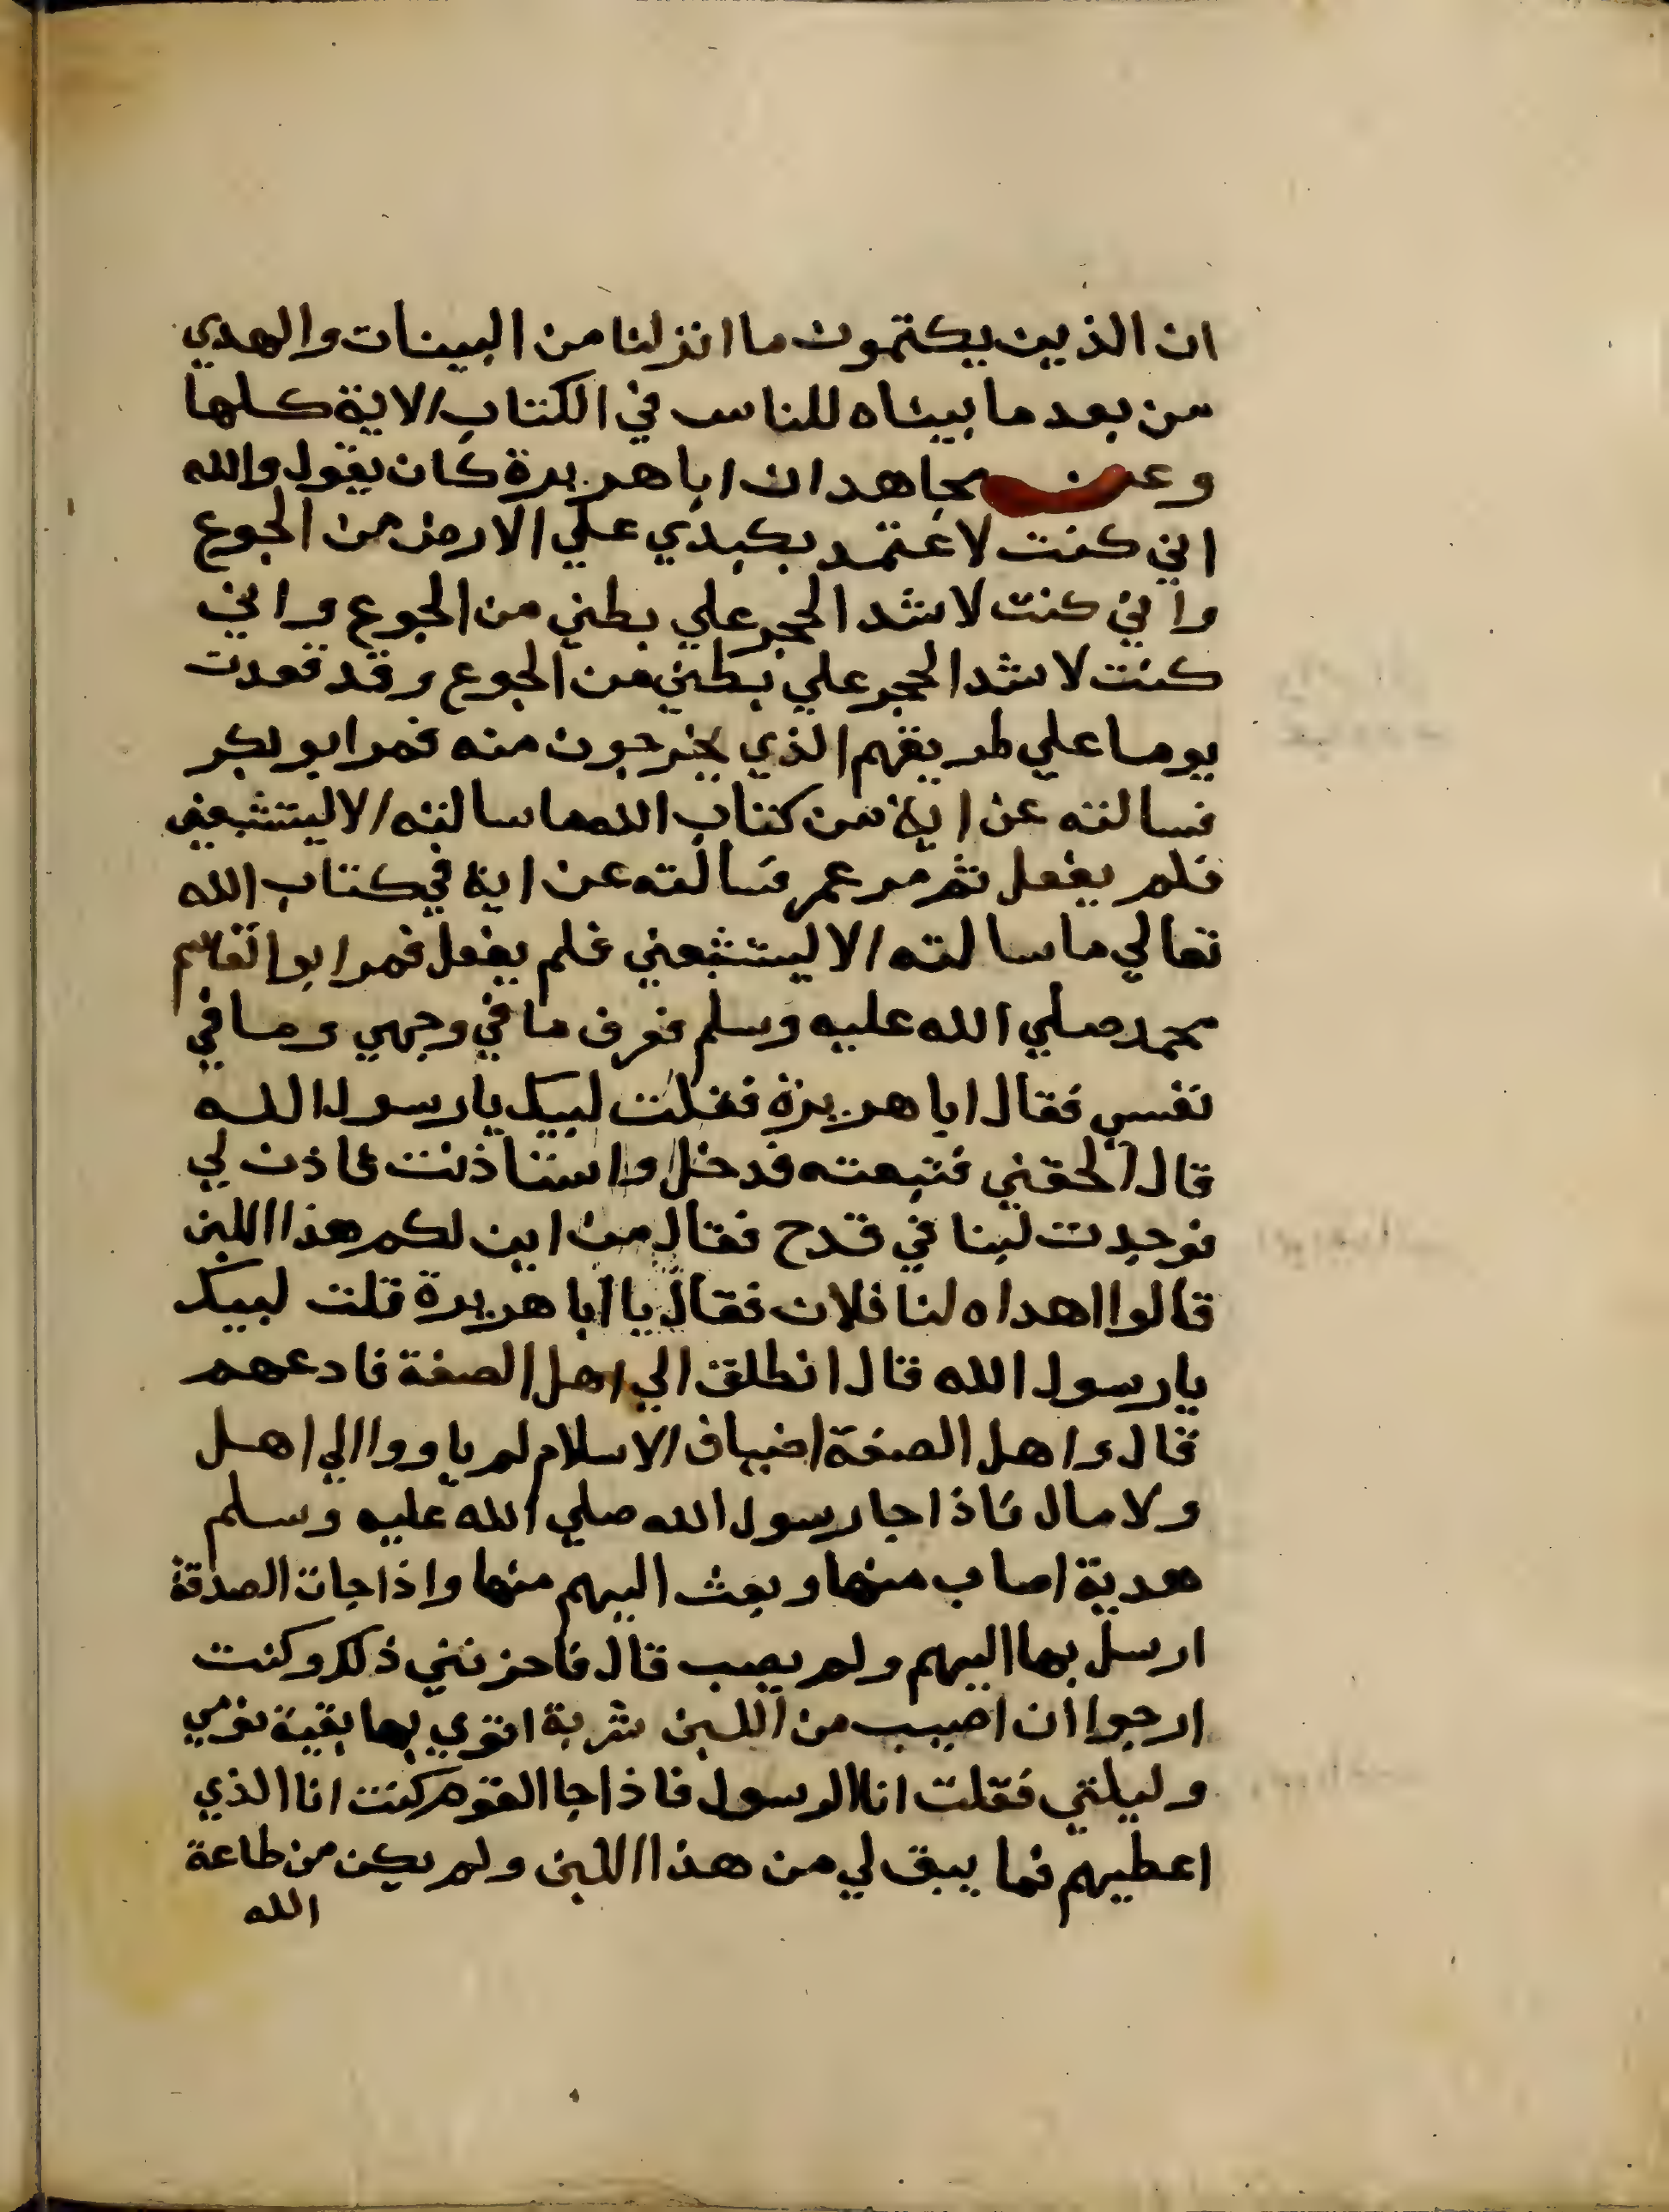 ان الذين يكتمون ما انزلنا من البينات والهدي
من بعد ما بيناه للناس في الكتاب الاية كلها
وعن مجاهد ان ابا هريرة كان يقول والله
اني كنت لاعتمد بكبدي علي الارض من الجوع
واني كنت لاشد الحجر علي بطني من الجوع واني
كنت لاشد الحجر علي بطني من الجوع وقد قعدت
يوما علي طريقهم الذي يخرجون منه فمر ابو بكر
فسالته عن اية من كتاب الله ما سالته الا ليتشبعني
فلم يفعل ثم مر عمر فسالته عن اية في كتاب الله
تعالي ما سالته الا ليتشبعني فلم يفعل فمر ابو القاسم
محمد صلي الله عليه وسلم فعرف ما في وجهي وما في
نفسي فقال ابا هريرة فقلت لبيك يا رسول الله
قال الحقني فتبعته فدخل واستاذنت فاذن لي
فوجدت لبنا في قدح فقال من اين لكم هذا اللبن
قالوا اهداه لنا فلان فقال يا ابا هريرة قلت لبيك
يا رسول الله قال انطلق الي اهل الصفة فادعهم
قال واهل الصفة اضياف الاسلام لم ياووا الي اهل
ولا مال فاذا جا رسول الله صلي الله عليه وسلم
هدية اصاب منها وبعث اليهم منها واذا جات الصدقة
ارسل بها اليهم ولم يصب قال فاحزنني ذلك وكنت
ارجوا ان اصيب من اللبن شربة اتقوي بها بقية يومي
وليلتي فقلت انا الرسول فاذا جا القوم كنت انا الذي
اعطيهم فما يبق لي من هذا اللبن ولم يكن من طاعة
الله